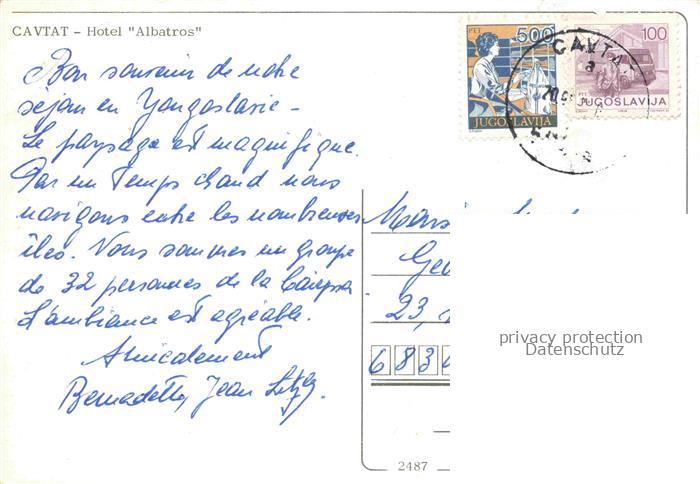 CAVTAT - Hotel "Albatros"
Bon souvenir de notre
séjour en Yougoslavie -
Le paysage est magnifique.
Par un Temps chaud nous
navigons entre les nombreuses
îles. Nous sommes un groupe
de 32 personnes de la
L'ambiance est agréable.
Amicalement
Bernadette, Jean
PTT 500
JUGOSLAVIJA
100
PTT
JUGOSLAVIJA
CAVTA
a
Geo
23,
6830
privacy protection
Datenschutz
2487